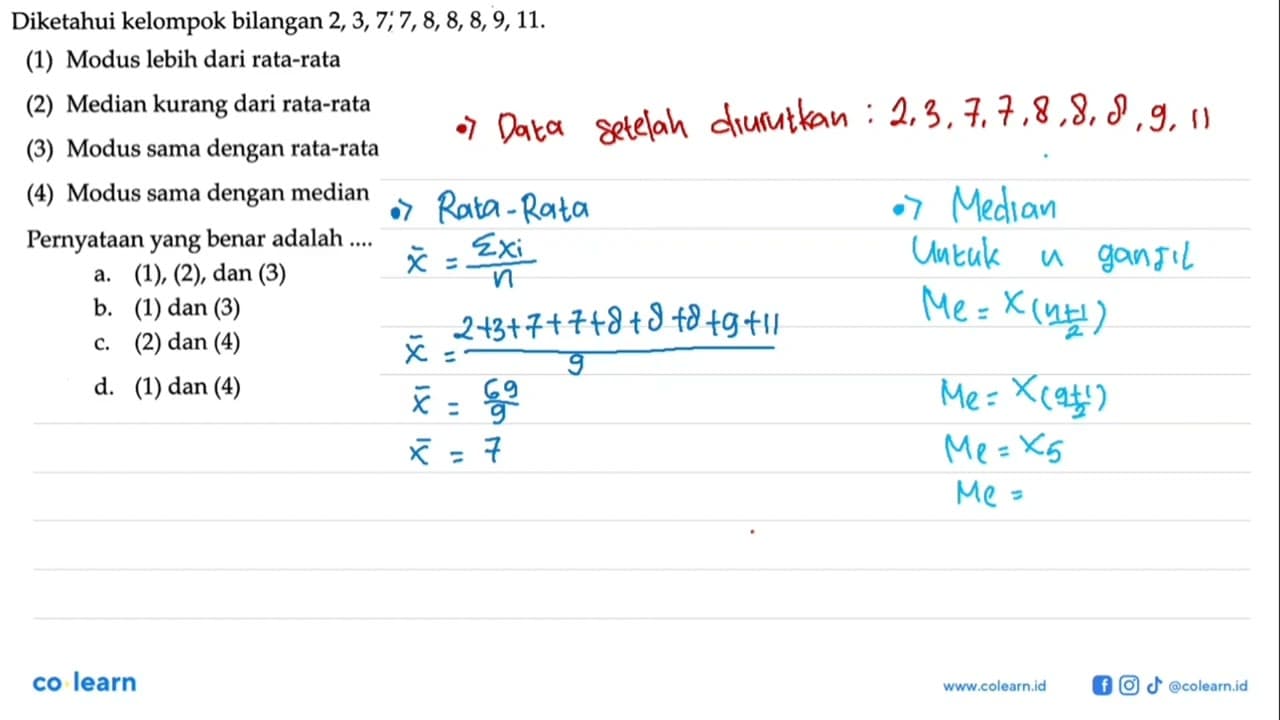 Diketahui kelompok bilangan 2, 3, 7, 7, 8, 8, 8, 9, 11.
(1) Modus lebih dari rata-rata
(2) Median kurang dari rata-rata
(3) Modus sama dengan rata-rata
(4) Modus sama dengan median
Pernyataan yang benar adalah ....
a. (1), (2), dan (3)
b. (1) dan (3)
c. (2) dan (4)
d. (1) dan (4)
•> Data setelah diurutkan : 2, 3, 7, 7, 8, 8, 8, 9, 11
•> Rata-Rata
x̄ = Σxi / n
x̄ = 2+3+7+7+8+8+8+9+11 / 9
x̄ = 69 / 9
x̄ = 7
•> Median
Untuk n ganjil
Me = X(n+1 / 2)
Me = X(9+1 / 2)
Me = X5
Me =
co learn
www.colearn.id
@colearn.id